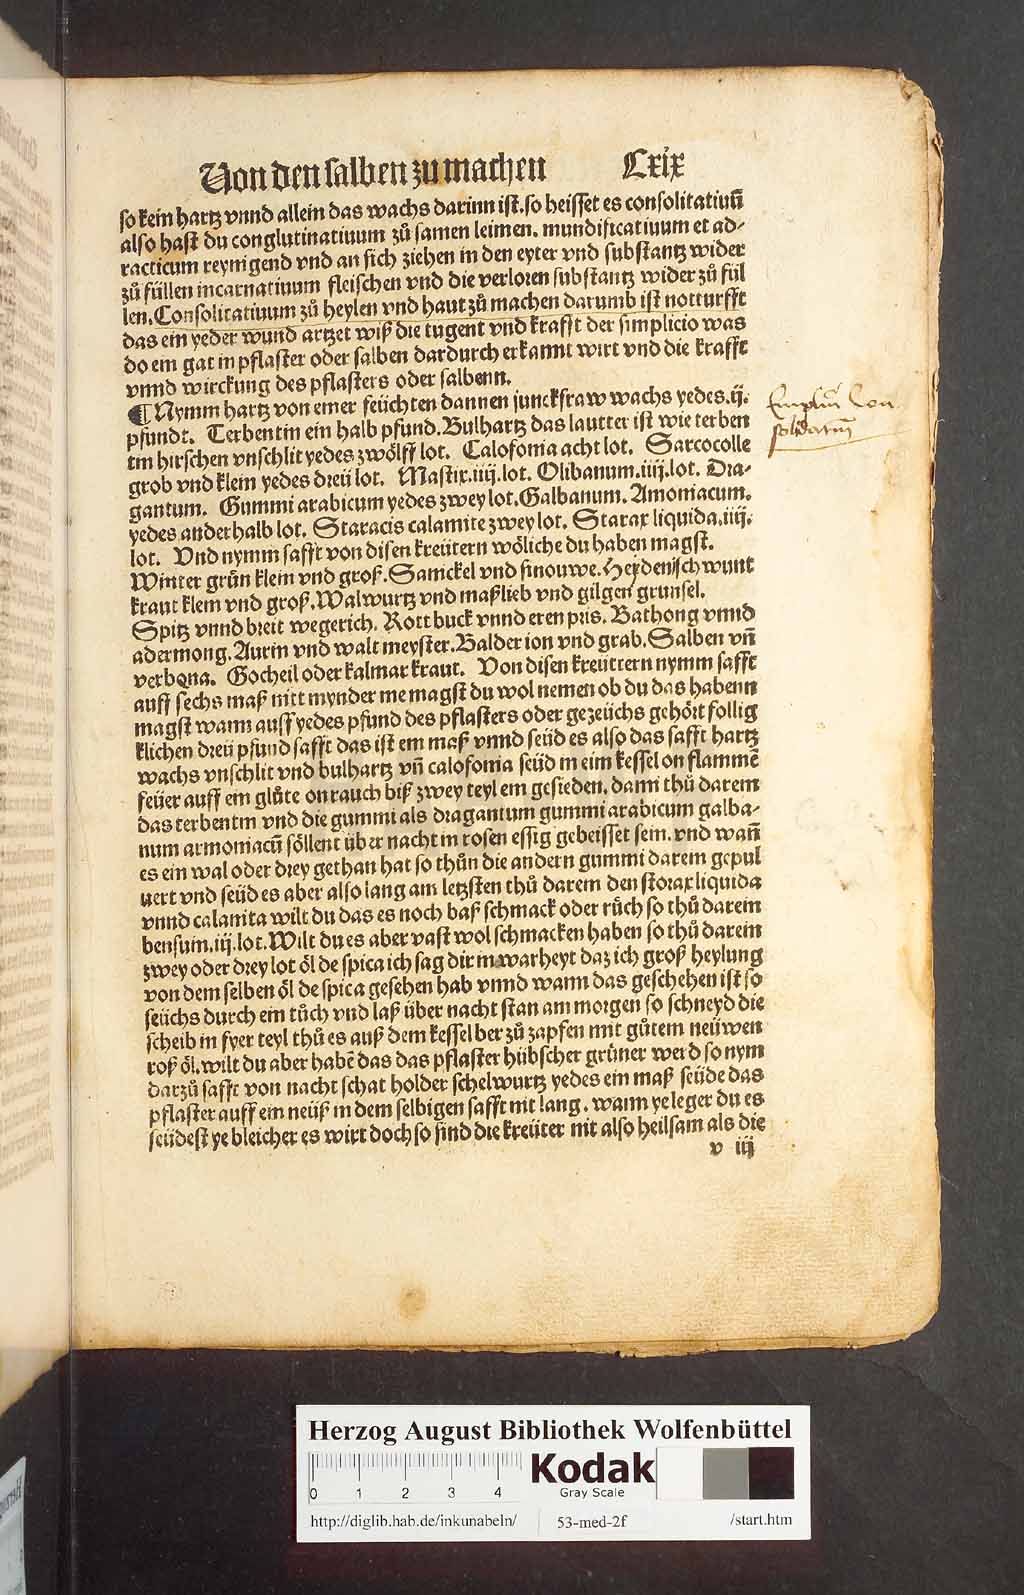 Von den salben zu machen Lxix
so kein hartz vnnd allein das wachs darinn ist. so heisset es consolitatiuū
also hast du conglutinatiuum zů samen leimen. mundificatiuum et ad-
racticum reynigend vnd an sich ziehen in den eyter vnd substantz wider
zů füllen incarnatiuum fleischen vnd die verloren substantz wider zů fül
len. Consolitatiuum zů heylen vnd haut zů machen darumb ist notturfft
das ein yeder wund artzet wiß die tugent vnd krafft der simplicio was
do ein gat in pflaster oder salben dardurch erkannt wirt vnd die krafft
vnnd wirckung des pflasters oder salbenn.
¶ Nymm hartz von einer feüchten dannen junckfraw wachs yedes .ij.
pfundt. Terbentin ein halb pfund. Bulhartz das lautter ist wie terben
tin hirschen vnschlit yedes zwölff lot. Calofonia acht lot. Sarcocolle
grob vnd klein yedes dreü lot. Mastix .iiij. lot. Olibanum .iiij. lot. Dra-
gantum. Gummi arabicum yedes zwey lot. Galbanum. Amoniacum.
yedes anderhalb lot. Staracis calamite zwey lot. Starax liquida .iiij.
lot. Vnd nymm safft von disen kreütern wöliche du haben magst.
Winter grün klein vnd groß. Sanickel vnd sinouwe. Heydenisch wunt
kraut klein vnd groß. Walwurtz vnd maßlieb vnd gilgen grunsel.
Spitz vnnd breit wegerich. Rott buck vnnd eren pris. Bathong vnnd
adermong. Aurin vnd walt meyster. Balder ion vnd grab. Salben vñ
verbena. Gocheil oder kalmar kraut. Von disen kreüttern nymm safft
auff sechs maß nitt mynder me magst du wol nemen ob du das habenn
magst wann auff yedes pfund des pflasters oder gezeüchs gehört follig
klichen dreü pfund safft das ist ein maß vnnd seüd es also das safft hartz
wachs vnschlit vnd bulhartz vñ calofonia seüd in eim kessel on flammē
feüer auff ein glůte on rauch biß zwey teyl ein gesieden. dann thů darein
das terbentin vnd die gummi als dragantum gummi arabicum galba-
num armoniacū söllent über nacht in rosen essig gebeisset sein. vnd wañ
es ein wal oder drey gethan hat so thůn die andern gummi darein gepul
uert vnd seüd es aber also lang am letzsten thů darein den storax liquida
vnnd calamita wilt du das es noch baß schmack oder rüch so thů darein
bensum .iij. lot. Wilt du es aber vast wol schmacken haben so thů darein
zwey oder drey lot öl de spica ich sag dir in warheyt daz ich groß heylung
von dem selben öl de spica gesehen hab vnnd wann das geschehen ist so
seüchs durch ein tůch vnd laß über nacht stan am morgen so schneyd die
scheib in fyer teyl thů es auß dem kessel ber zů zapfen mit gůtem neüwen
roß öl. wilt du aber habē das das pflaster hübscher grüner werd so nym
darzů safft von nacht schat holder schelwurtz yedes ein maß seüde das
pflaster auff ein neüß in dem selbigen safft nit lang. wann ye leger du es
seüdest ye bleicher es wirt doch so sind die kreüter nit also heilsam als die
v iij
Emplm̄ Con
solidatiū
Herzog August Bibliothek Wolfenbüttel
0 1 2 3 4
Kodak
Gray Scale
http://diglib.hab.de/inkunabeln/ 53-med-2f /start.htm